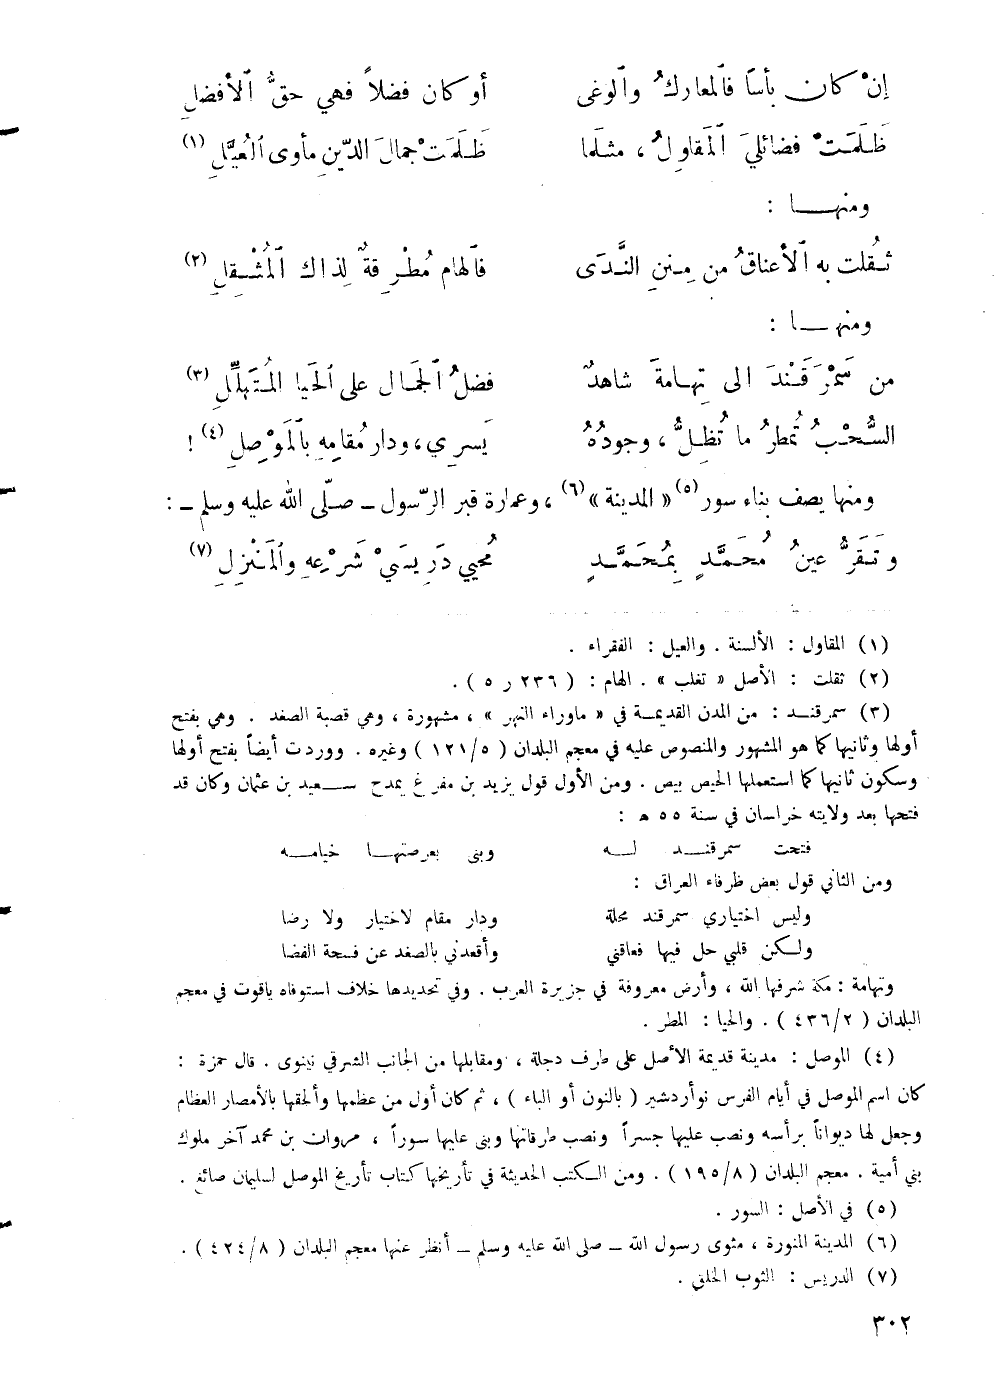 إنْ كان بأسًا فٱلمعاركُ وٱلوغى أو كان فضلاً فهي حقُّ ٱلأفضلِ
ظَلَمَتْ فضائليَ ٱلمَقاولُ ، مثلَما ظَلَمَتْ جمالَ الدّينِ مأوى ٱلعُيَّلِ (١)
ومنهـــا :
ثَقُلت به ٱلأعناقُ من مِننِ النَّدَى فٱلهام مُطْرِقةٌ لِذاك ٱلمُثْقِلِ (٢)
ومنهـــا :
من سَمْرَقَنْدَ الى تِهامةَ شاهدٌ فضلُ ٱلجَمال على ٱلحَيا المُتَهلِّلِ (٣)
السُّحْبُ تُمطرُ ما تُظِلُّ ، وجودُهُ يَسري ، ودار مُقامِهِ بٱلمَوْصِلِ (٤) !
ومنها يصف بناء سور (٥) « المدينة » (٦) ، وعمارة قبر الرّسول ــ صلّى الله عليه وسلم ــ :
وتَقَرُّ عينُ مُحَمَّدٍ بِمُحَمَّدٍ مُحيي دَرِيسَيْ شَرْعِهِ وٱلمَنْزِلِ (٧)
(١) المقاول : الألسنة . والعيل : الفقراء .
(٢) ثقلت : الأصل « تغلب » . الهام : ( ٢٣٦ ر ٥ ) .
(٣) سمرقنــد : من المدن القديمــة في « ماوراء النهر » ، مشهورة ، وهي قصبة الصغد . وهي بفتح
أولها وثانيها كما هو المشهور والمنصوص عليه في معجم البلدان ( ٥/١٢١ ) وغيره . ووردت أيضاً بفتح أولها
وسكون ثانيها كما استعملها الحيص بيص . ومن الأول قول يزيد بن مفرغ يمدح سـعيد بن عثمان وكان قد
فتحها بعد ولايته خراسان في سنة ٥٥ ھ :
فتحت سمرقنــد لــه وبنى بعرصتهـا خيامــه
ومن الثاني قول بعض ظرفاء العراق :
وليس اختياري سمرقند محلة ودار مقام لاختيار ولا رضا
ولكن قلبي حل فيها فعاقني وأقعدني بالصغد عن فسحة الفضا
وتهامة : مكة شرفها الله ، وأرض معروفة في جزيرة العرب . وفي تحديدها خلاف استوفاه ياقوت في معجم
البلدان ( ٢/٤٣٦ ) . والحيا : المطر .
(٤) الموصل : مدينة قديمة الأصل على طرف دجلة ، ومقابلها من الجانب الشرقي نينوى . قال حمزة :
كان اسم الموصل في أيام الفرس نوأردشير ( بالنون أو الباء ) ، ثم كان أول من عظمها وألحقها بالأمصار العظام
وجعل لها ديواناً برأسه ونصب عليها جسراً ونصب طرقاتها وبنى عليها سوراً ، مروان بن محمد آخر ملوك
بني أمية . معجم البلدان ( ٨/١٩٥ ) . ومن الكتب الحديثة في تأريخها كتاب تأريخ الموصل لسليمان صائغ .
(٥) في الأصل : السور .
(٦) المدينة المنورة ، مثوى رسول الله ــ صلى الله عليه وسلم ــ أنظر عنها معجم البلدان ( ٨/٤٢٤ ) .
(٧) الدريس : الثوب الخلق .
٣٠٢